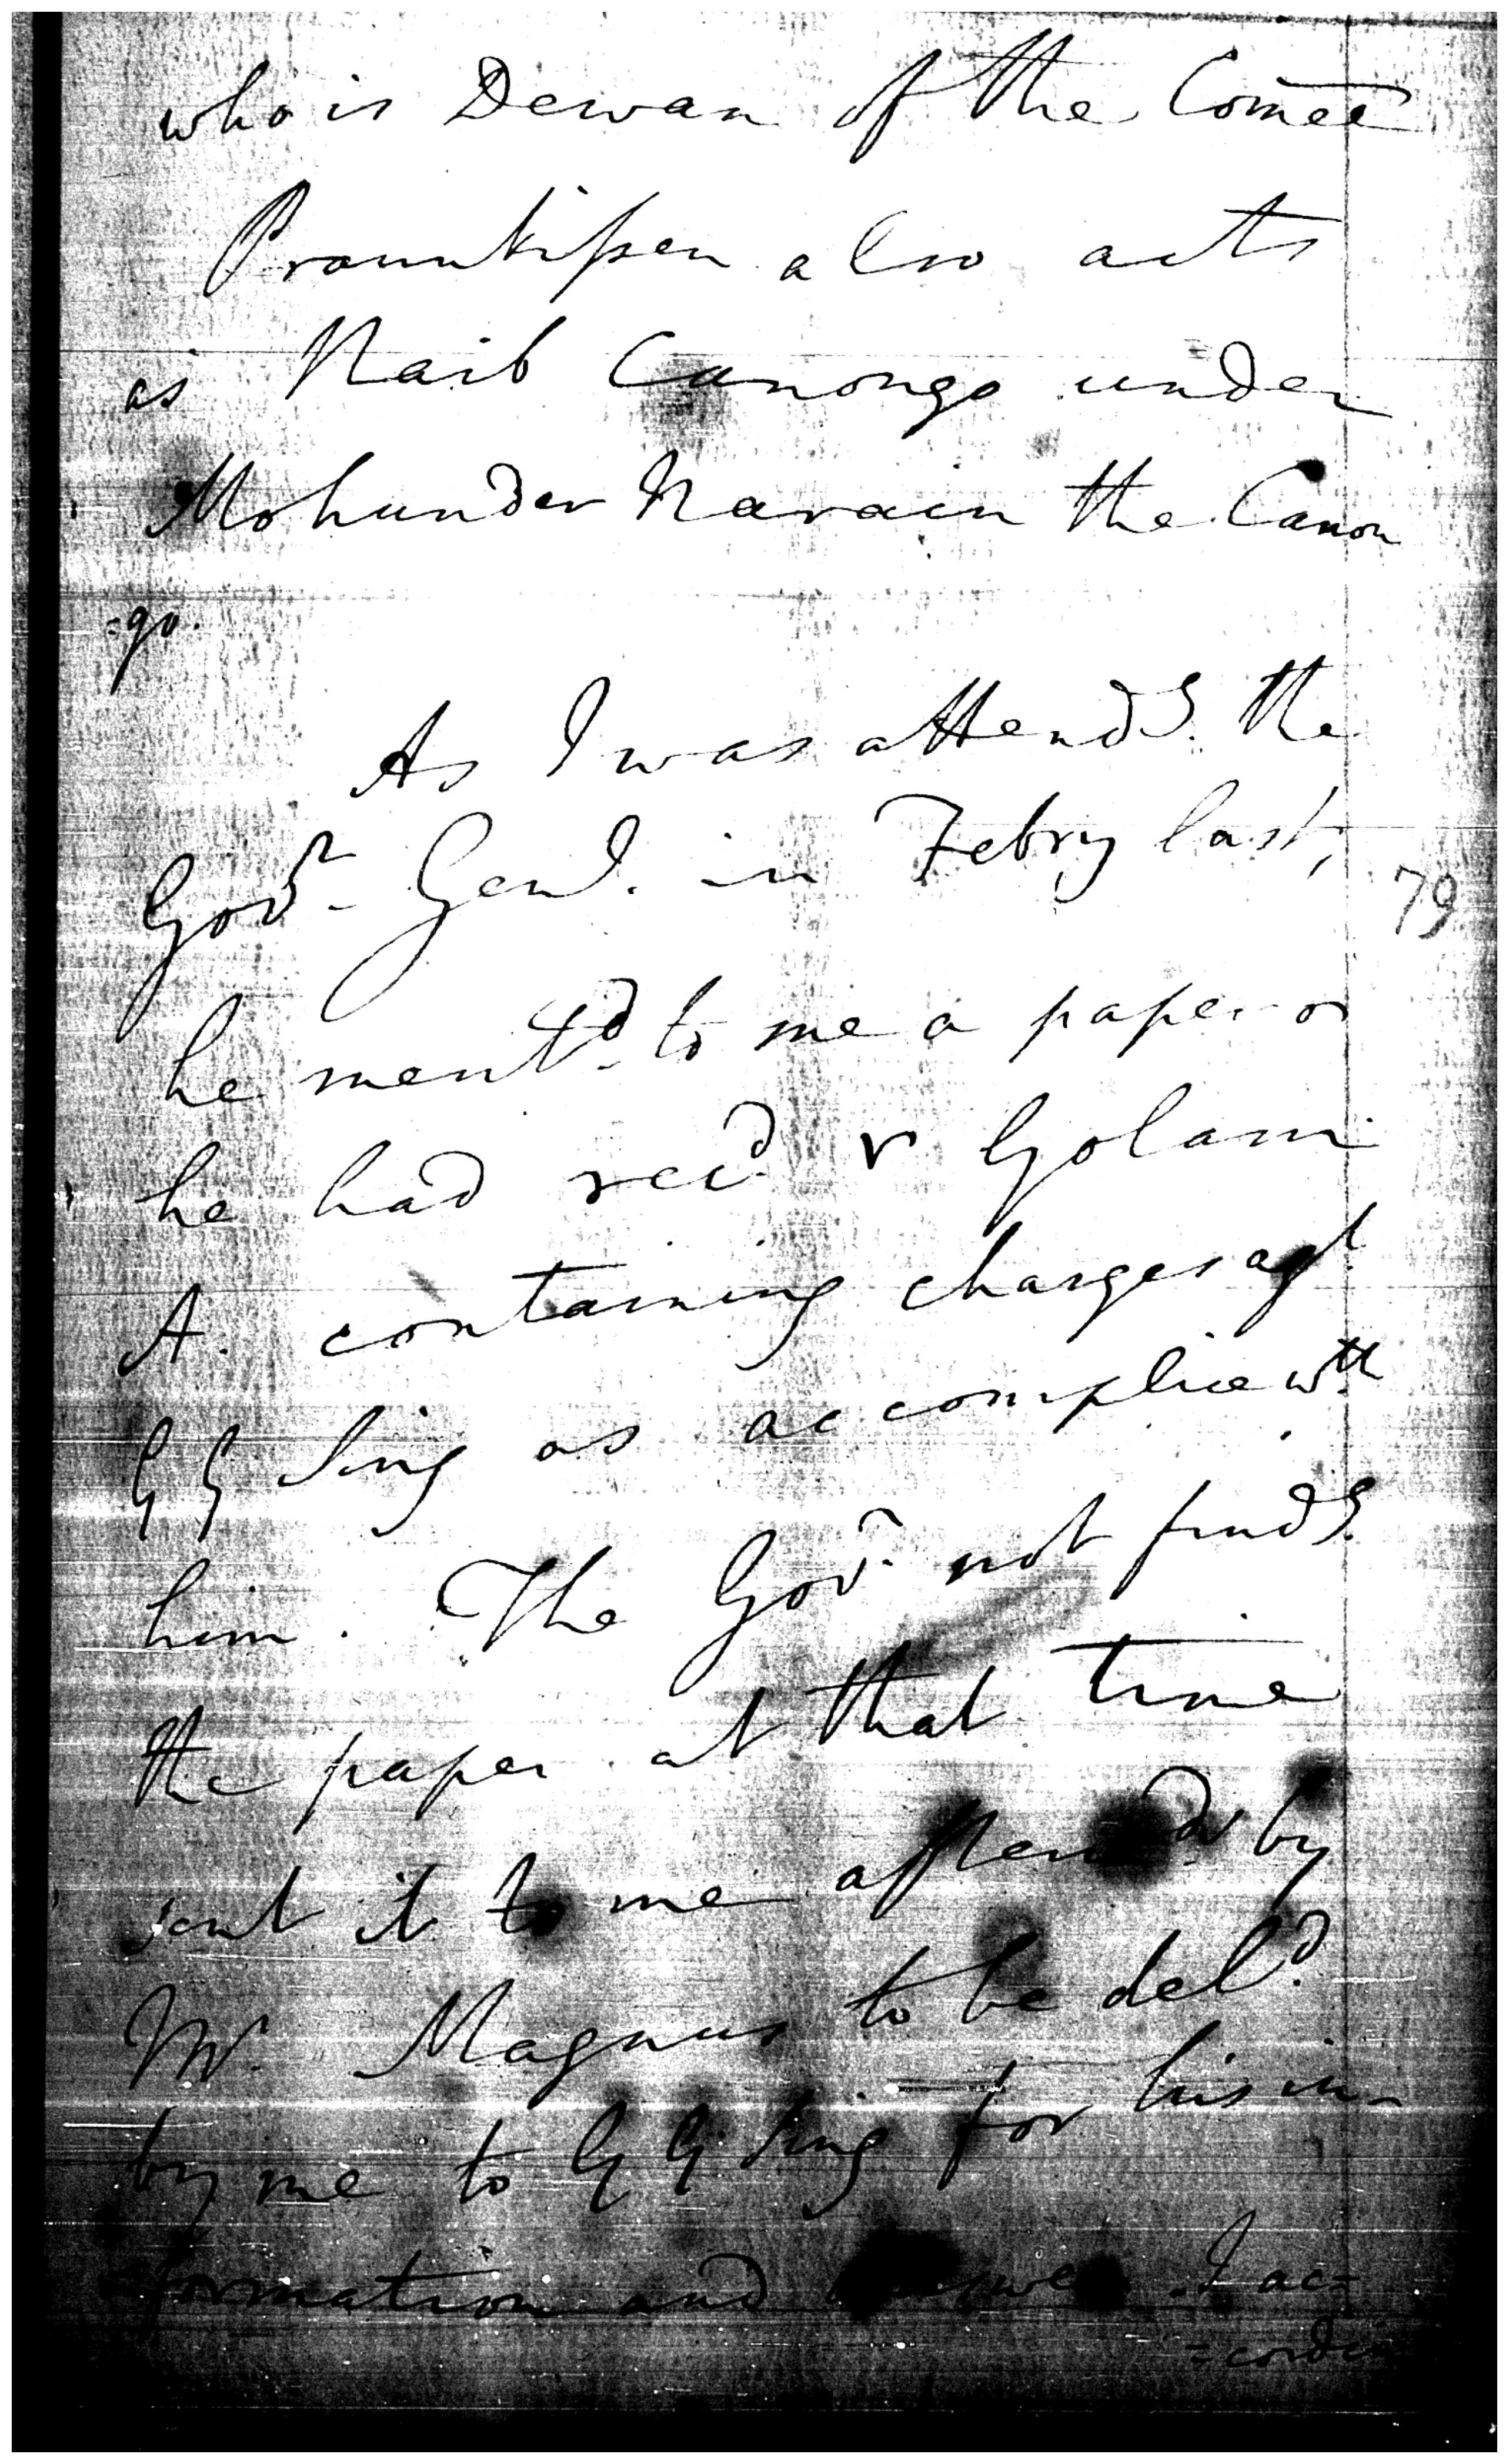 who is Dewan of the Comee
Praunkissen also acts
as Naib Canongo under
Mohunder Narain the Canon
=go.
As I was attendg. the
Govr. Genl. in Febry last,
79
he mentd. to me a paper
he had recd. Golam
A. containing charges agt.
G G Sing as accomplice wth
him. The Govr. not findg.
the paper at that time
sent it to me afterwds by
Mr. Magnus to be deld.
by me to G G Sing for his in-
formation and answer. I ac=
=cordin